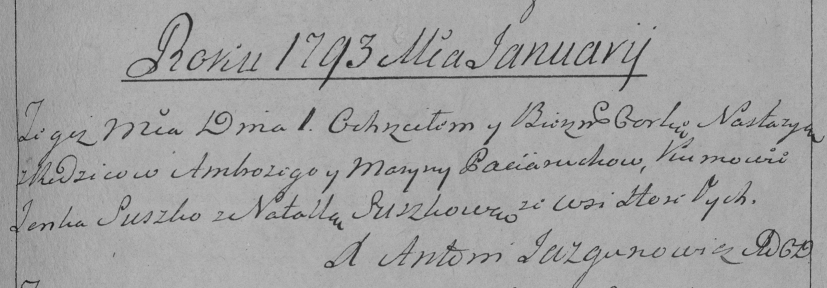 Roku 1793 Mca Januarij
Tegoż Mca Dnia 1. Ochrzciłem y Bierzm Corkę Nastazyą
z Rodzicow Ambrożego y Maryny Paciaruchow, Kumowie
Jenka Suszko z Natallą Suszkową ze wsi
X Antoni Jazgunowicz